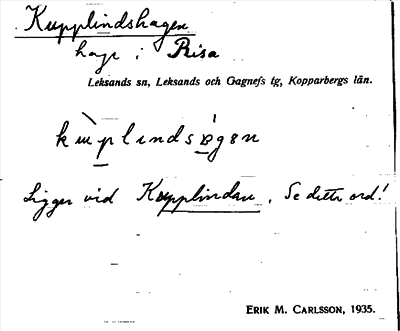 Kupplindshagen
hage i Risa
Leksands sn, Leksands och Gagnefs tg, Kopparbergs län.
Ligger vid Kupplindan, Se detta ord!
ERIK M. CARLSSON, 1935.